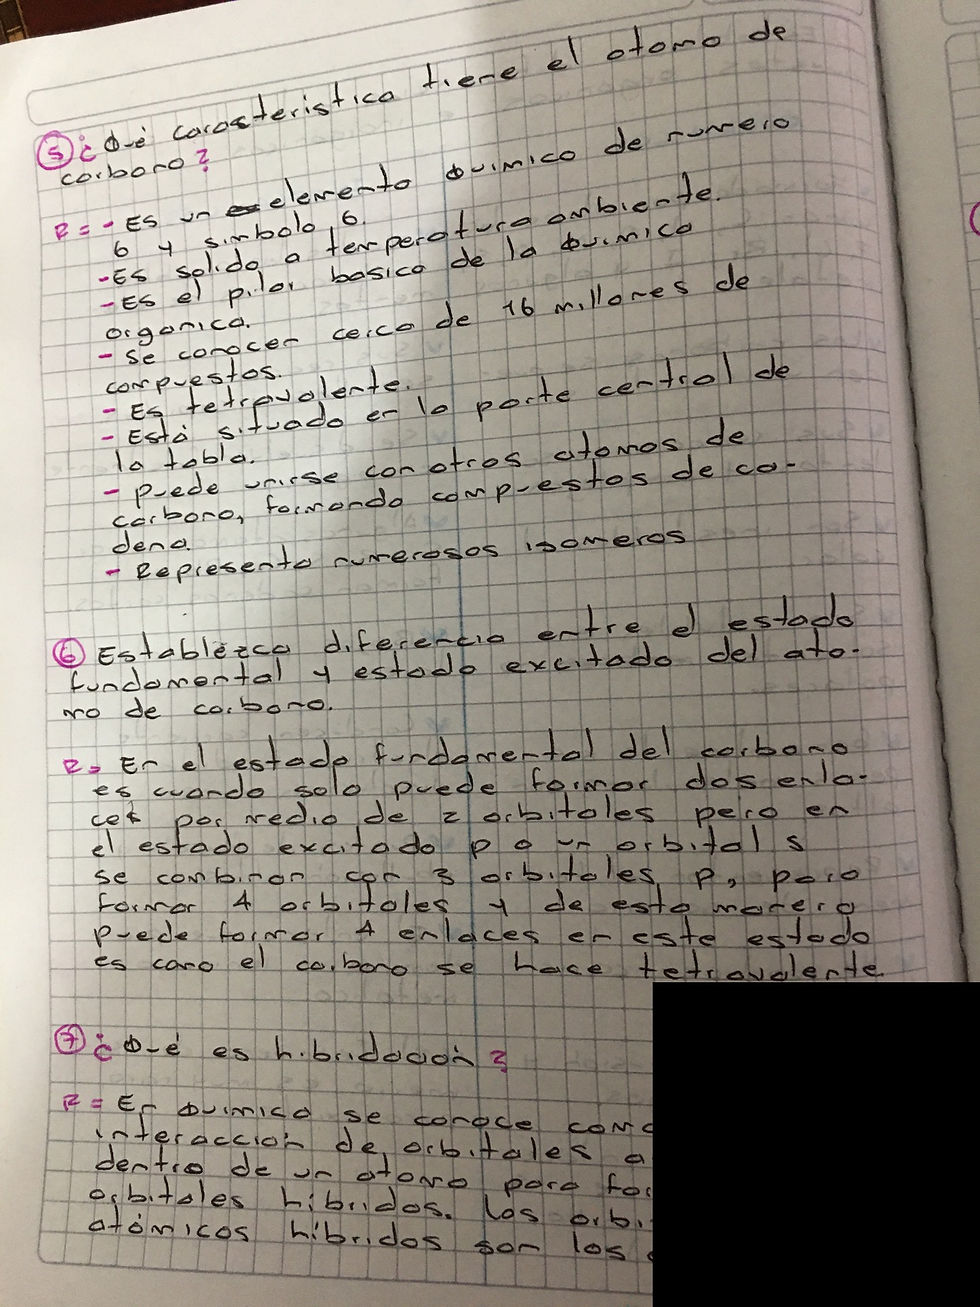 ⑤ ¿Qué carasteristica tiene el atomo de
carbono?
R= - Es un elemento químico de numero
6 y simbolo 6.
- Es solido a temperatura ambiente.
- Es el pilar basico de la química
organica.
- Se conocen cerca de 16 millones de
compuestos.
- Es tetravalente.
- Está situado en la parte central de
la tabla.
- Puede unirse con otros atomos de
carbono, formando compuestos de ca-
dena.
- Representa numerosos isomeros
⑥ Establezca diferencia entre el estado
fundamental y estado excitado del ato-
mo de carbono.
R= En el estado fundamental del carbono
es cuando solo puede formar dos enla-
ces por medio de 2 orbitales pero en
el estado excitado p o un orbital s
se combinan con 3 orbitales p, para
formar 4 orbitales y de esta manera
puede formar 4 enlaces en este estado
es como el carbono se hace tetravalente
⑦ ¿Qué es hibridación?
R= En química se conoce como
interacción de orbitales a
dentro de un atomo para for
orbitales híbridos. Los orbi
atómicos híbridos son los